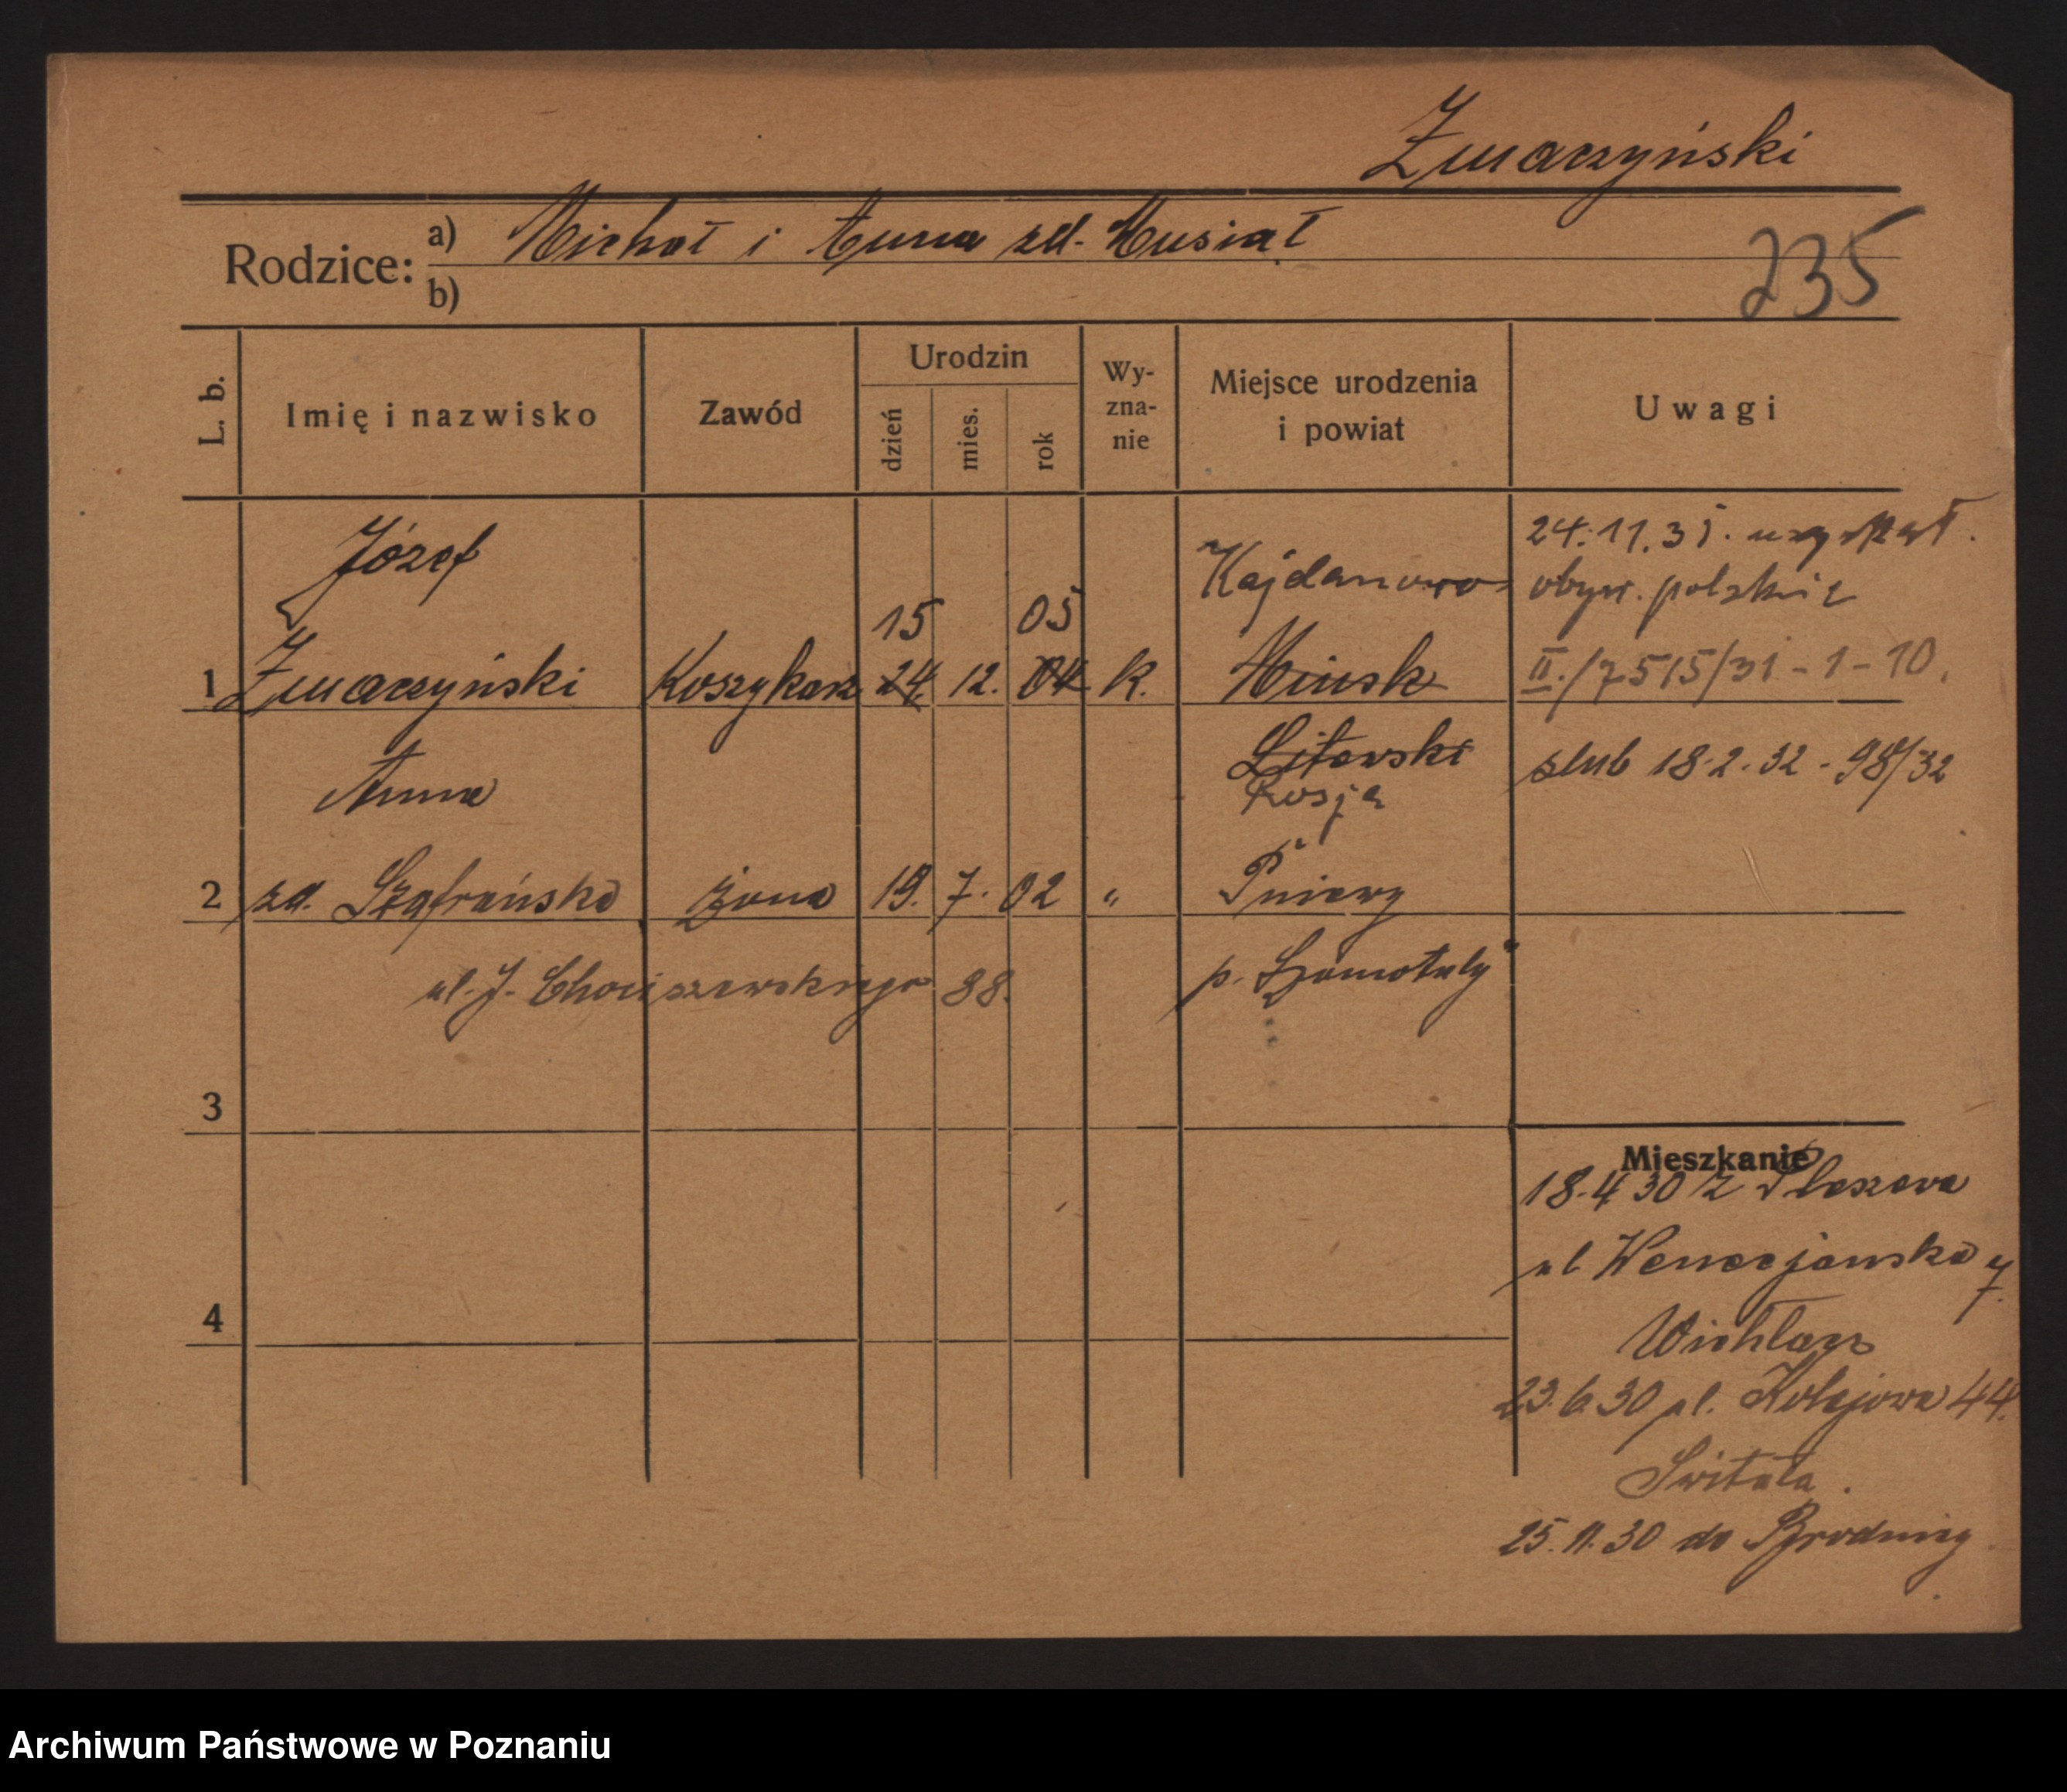 Zmaczyński
Rodzice: a) Michał i Anna zd. Musiał
b)
235
L. b. Imię i nazwisko Zawód Urodzin dzień mies. rok Wy-zna-nie Miejsce urodzenia i powiat Uwagi
Józef Kajdanowo 24.11.31. uzyskał
15 05 obyw. polskie
1 Zmaczyński Koszykarz 24. 12. 04 k. Mińsk II./7515/31-1-10.
Anna Litewski ślub 18.2.32 - 98/32
Rosja
2 zd. Szafrańska żona 19. 7. 02 " Pniewy
ul. J. Chociszewskiego 38. p. Szamotuły
3
Mieszkanie
18.4 30 z Pleszewa
ul Wenecjańska 7.
4
23.6.30 ul. Kolejowa 44.
Świtała.
25.11.30 do Brodnicy
Archiwum Państwowe w Poznaniu